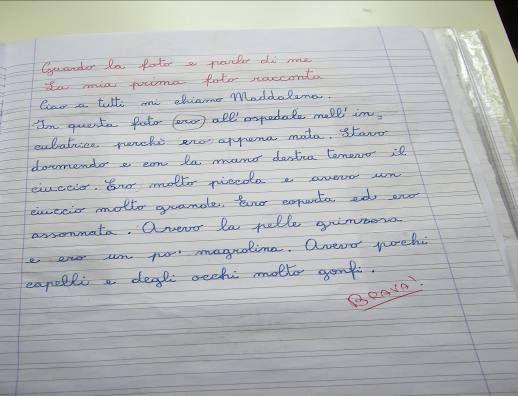 Guardo la foto e parlo di me
La mia prima foto racconta
Ciao a tutti mi chiamo Maddalena.
In questa foto (ero) all'ospedale nell'in=
cubatrice perchè ero appena nata. Stavo
dormendo e con la mano destra tenevo il
ciuccio. Ero molto piccola e avevo un
ciuccio molto grande. Ero coperta ed ero
assonnata. Avevo la pelle grinzosa
e ero un po' magrolina. Avevo pochi
capelli e degli occhi molto gonfi.
BRAVA!